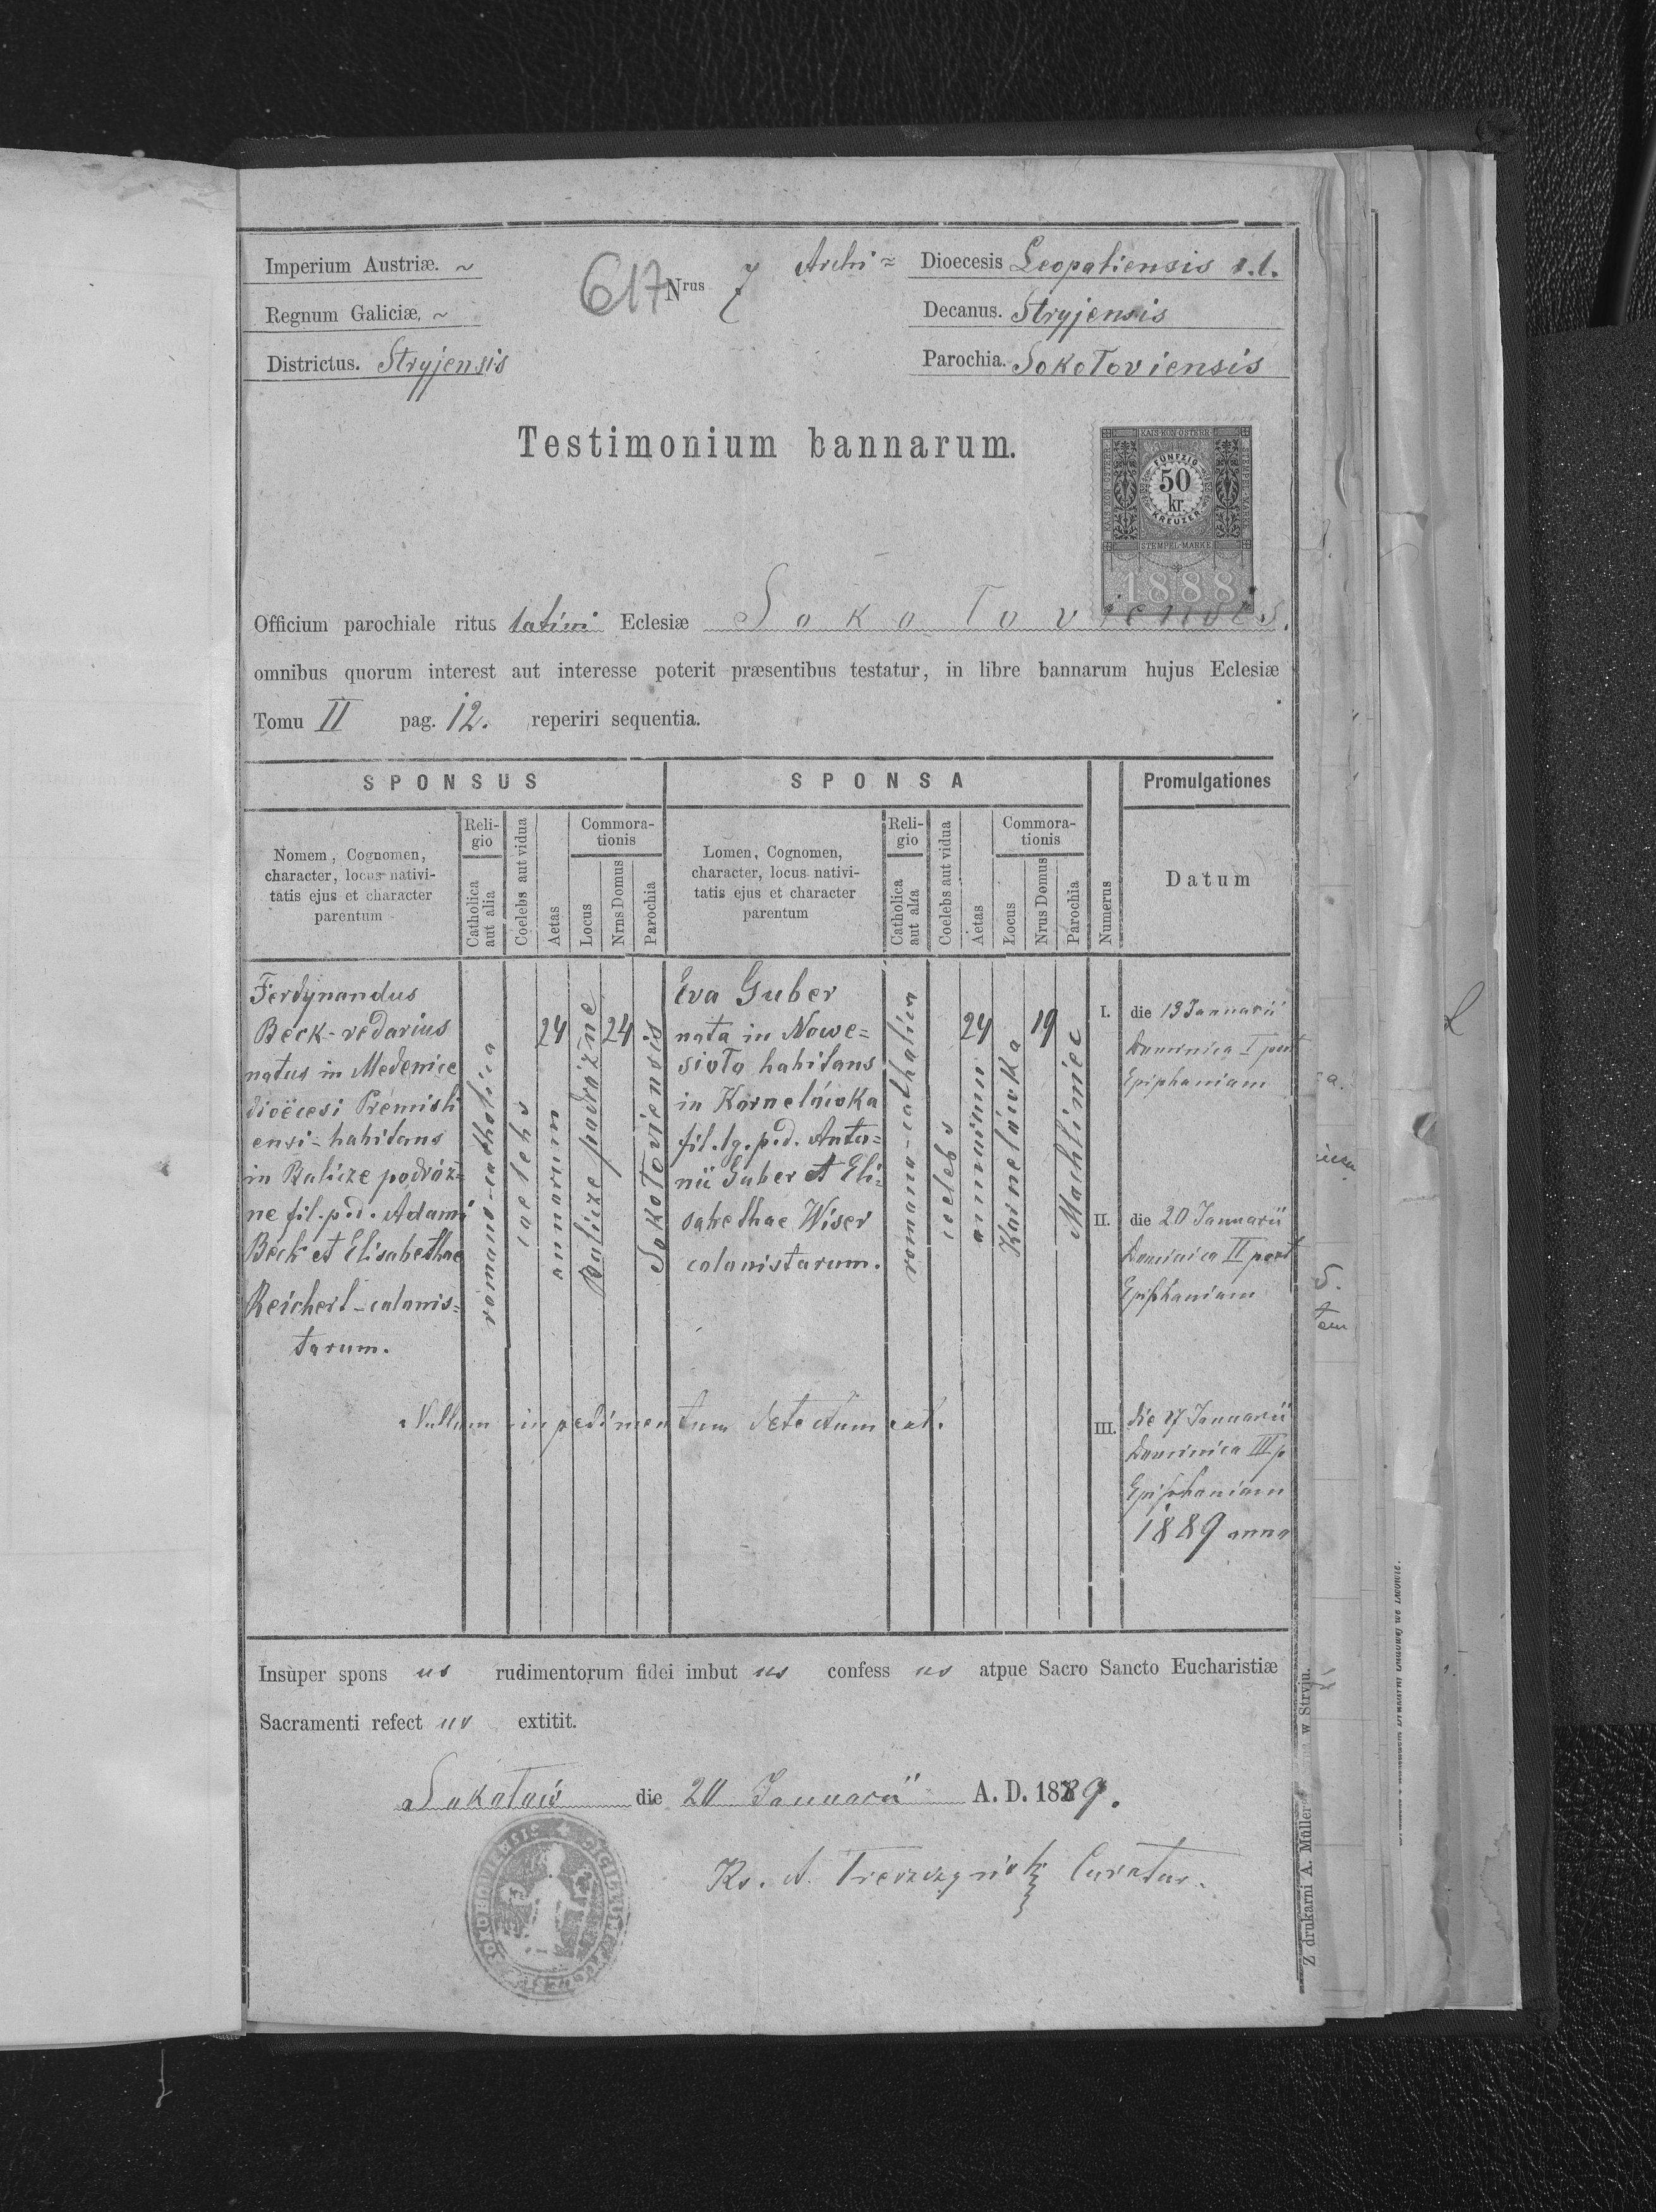 Imperium Austriæ. ~
Regnum Galiciæ, ~
Districtus. Stryjensis
617 Nrus 7
Archi = Dioecesis Leopoliensis r.l.
Decanus. Stryjensis
Parochia. Sokołoviensis
Testimonium bannarum.
KAIS·KÖN·ÖSTERR
FÜNFZIG
50
kr.
KREUZER
STEMPEL-MARKE
1888
Officium parochiale ritus latini Eclesiæ Sokołoviensis.
omnibus quorum interest aut interesse poterit præsentibus testatur, in libre bannarum hujus Eclesiæ
Tomu II pag. 12. reperiri sequentia.
SPONSUS
Nomem, Cognomen,
character, locus nativi-
tatis ejus et character
parentum
Reli-
gio
Catholica
aut alia
Coelebs aut vidua
Aetas
Commora-
tionis
Locus
Nrns Domus
Parochia
SPONSA
Lomen, Cognomen,
character, locus nativi-
tatis ejus et character
parentum
Reli-
gio
Catholica
aut alia
Coelebs aut vidua
Aetas
Commora-
tionis
Locus
Nrus Domus
Parochia
Numerus
Promulgationes
Datum
Ferdynandus
Beck - redarius
natus in Medenice
dioëcesi Premisli
ensi - habitans
in Balicze podróż=
ne fil. p.d. Adami
Beck et Elisabethae
Reichert - colonis=
tarum.
romano-catholica
coelebs
24
annorum
Balicze podróżne
24
Sokołoviensis
Eva Guber
nata in Nowe=
sioło habitans
in Kornelówka
fil. lg. p.d. Anto=
nii Guber et Eli=
sabethae Wiser
colonistarum.
romano-catholica
coelebs
24
annorum
Kornelówka
19
Machliniec
I. die 13 Januarii
Dominica I post
Epiphaniam
II. die 20 Januarii
Dominica II post
Epiphaniam
III. die 27 Januarii
Dominica III p
Epiphaniam
1889 anno
Nullum inpedimentum detectum est.
Insuper spons us rudimentorum fidei imbut us confess us atpue Sacro Sancto Eucharistiæ
Sacramenti refect us extitit.
Sokołów die 20 Januarii A. D. 1889.
Ks. A. Curatus.
Z drukarni A. Müllera w Stryju.